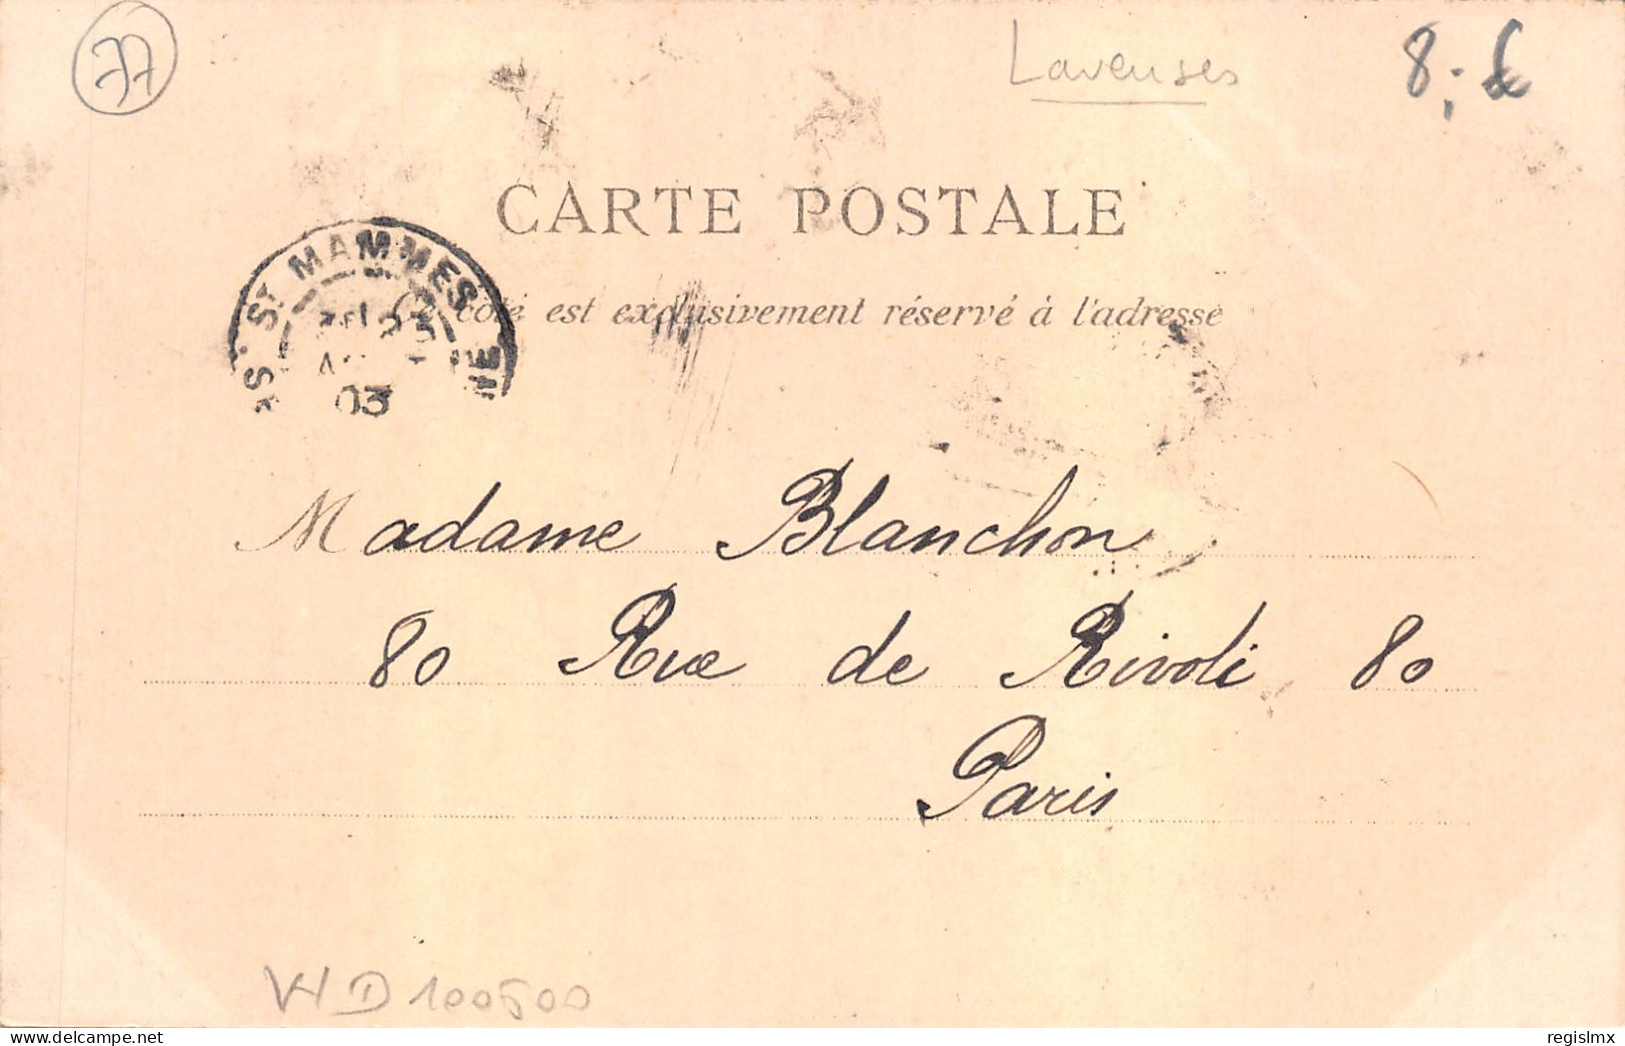 77
Laveuses
8,- €
CARTE POSTALE
Ce côté est exclusivement réservé à l'adresse
ST MAMMES
03
Madame Blanchon
80 Rue de Rivoli 80
Paris
100500
regislmx